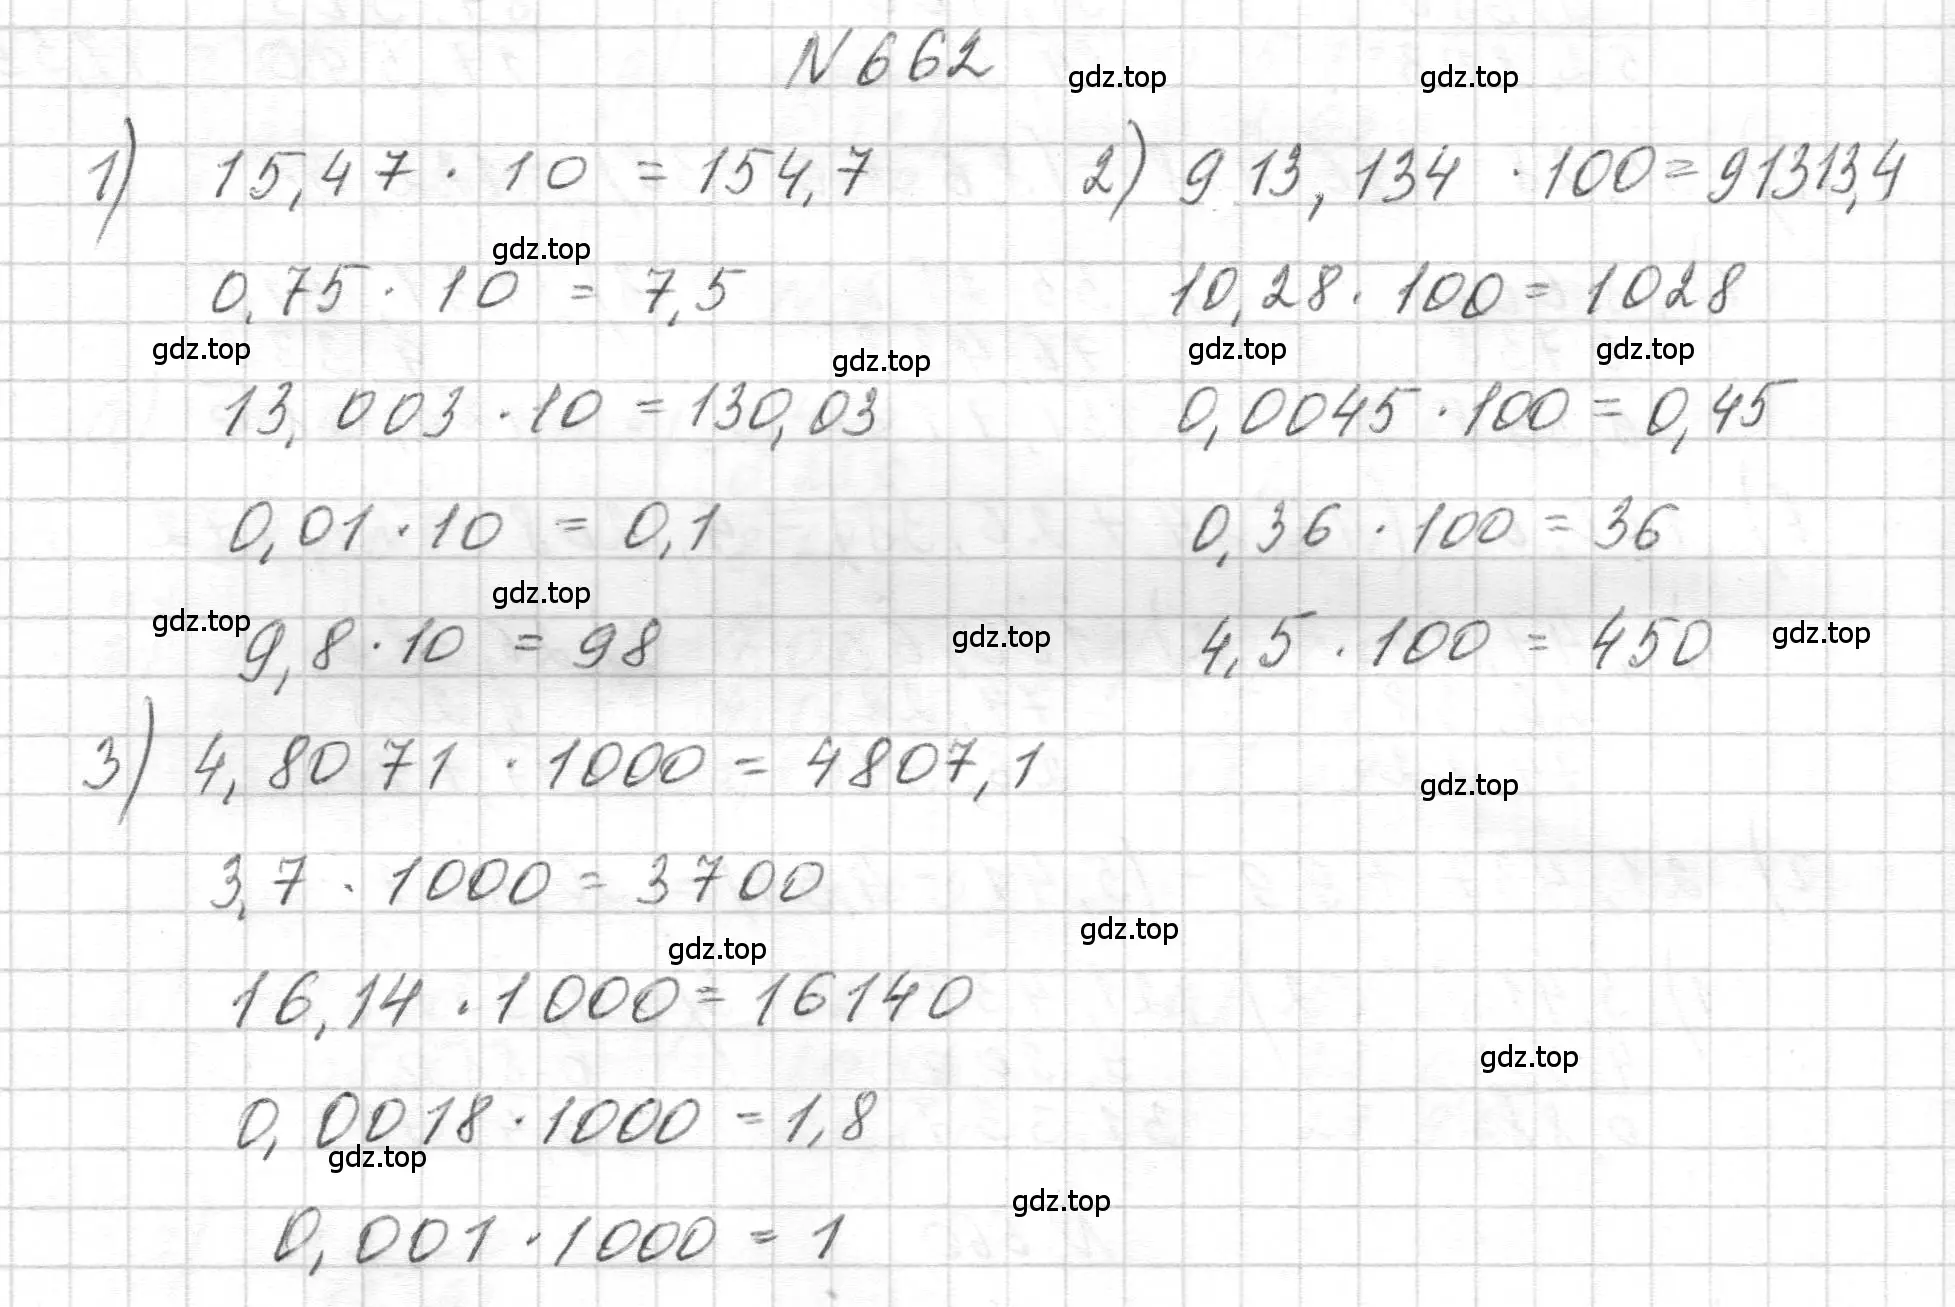 N 662
gdz.top gdz.top
1) 15,47 · 10 = 154,7
2) 913,134 · 100 = 91313,4
gdz.top
0,75 · 10 = 7,5
10,28 · 100 = 1028
gdz.top gdz.top gdz.top gdz.top
13,003 · 10 = 130,03
0,0045 · 100 = 0,45
0,01 · 10 = 0,1
0,36 · 100 = 36
gdz.top gdz.top gdz.top gdz.top
9,8 · 10 = 98
4,5 · 100 = 450
3) 4,8071 · 1000 = 4807,1
gdz.top
3,7 · 1000 = 3700
gdz.top gdz.top
16,14 · 1000 = 16140
gdz.top
0,0018 · 1000 = 1,8
gdz.top gdz.top
0,001 · 1000 = 1